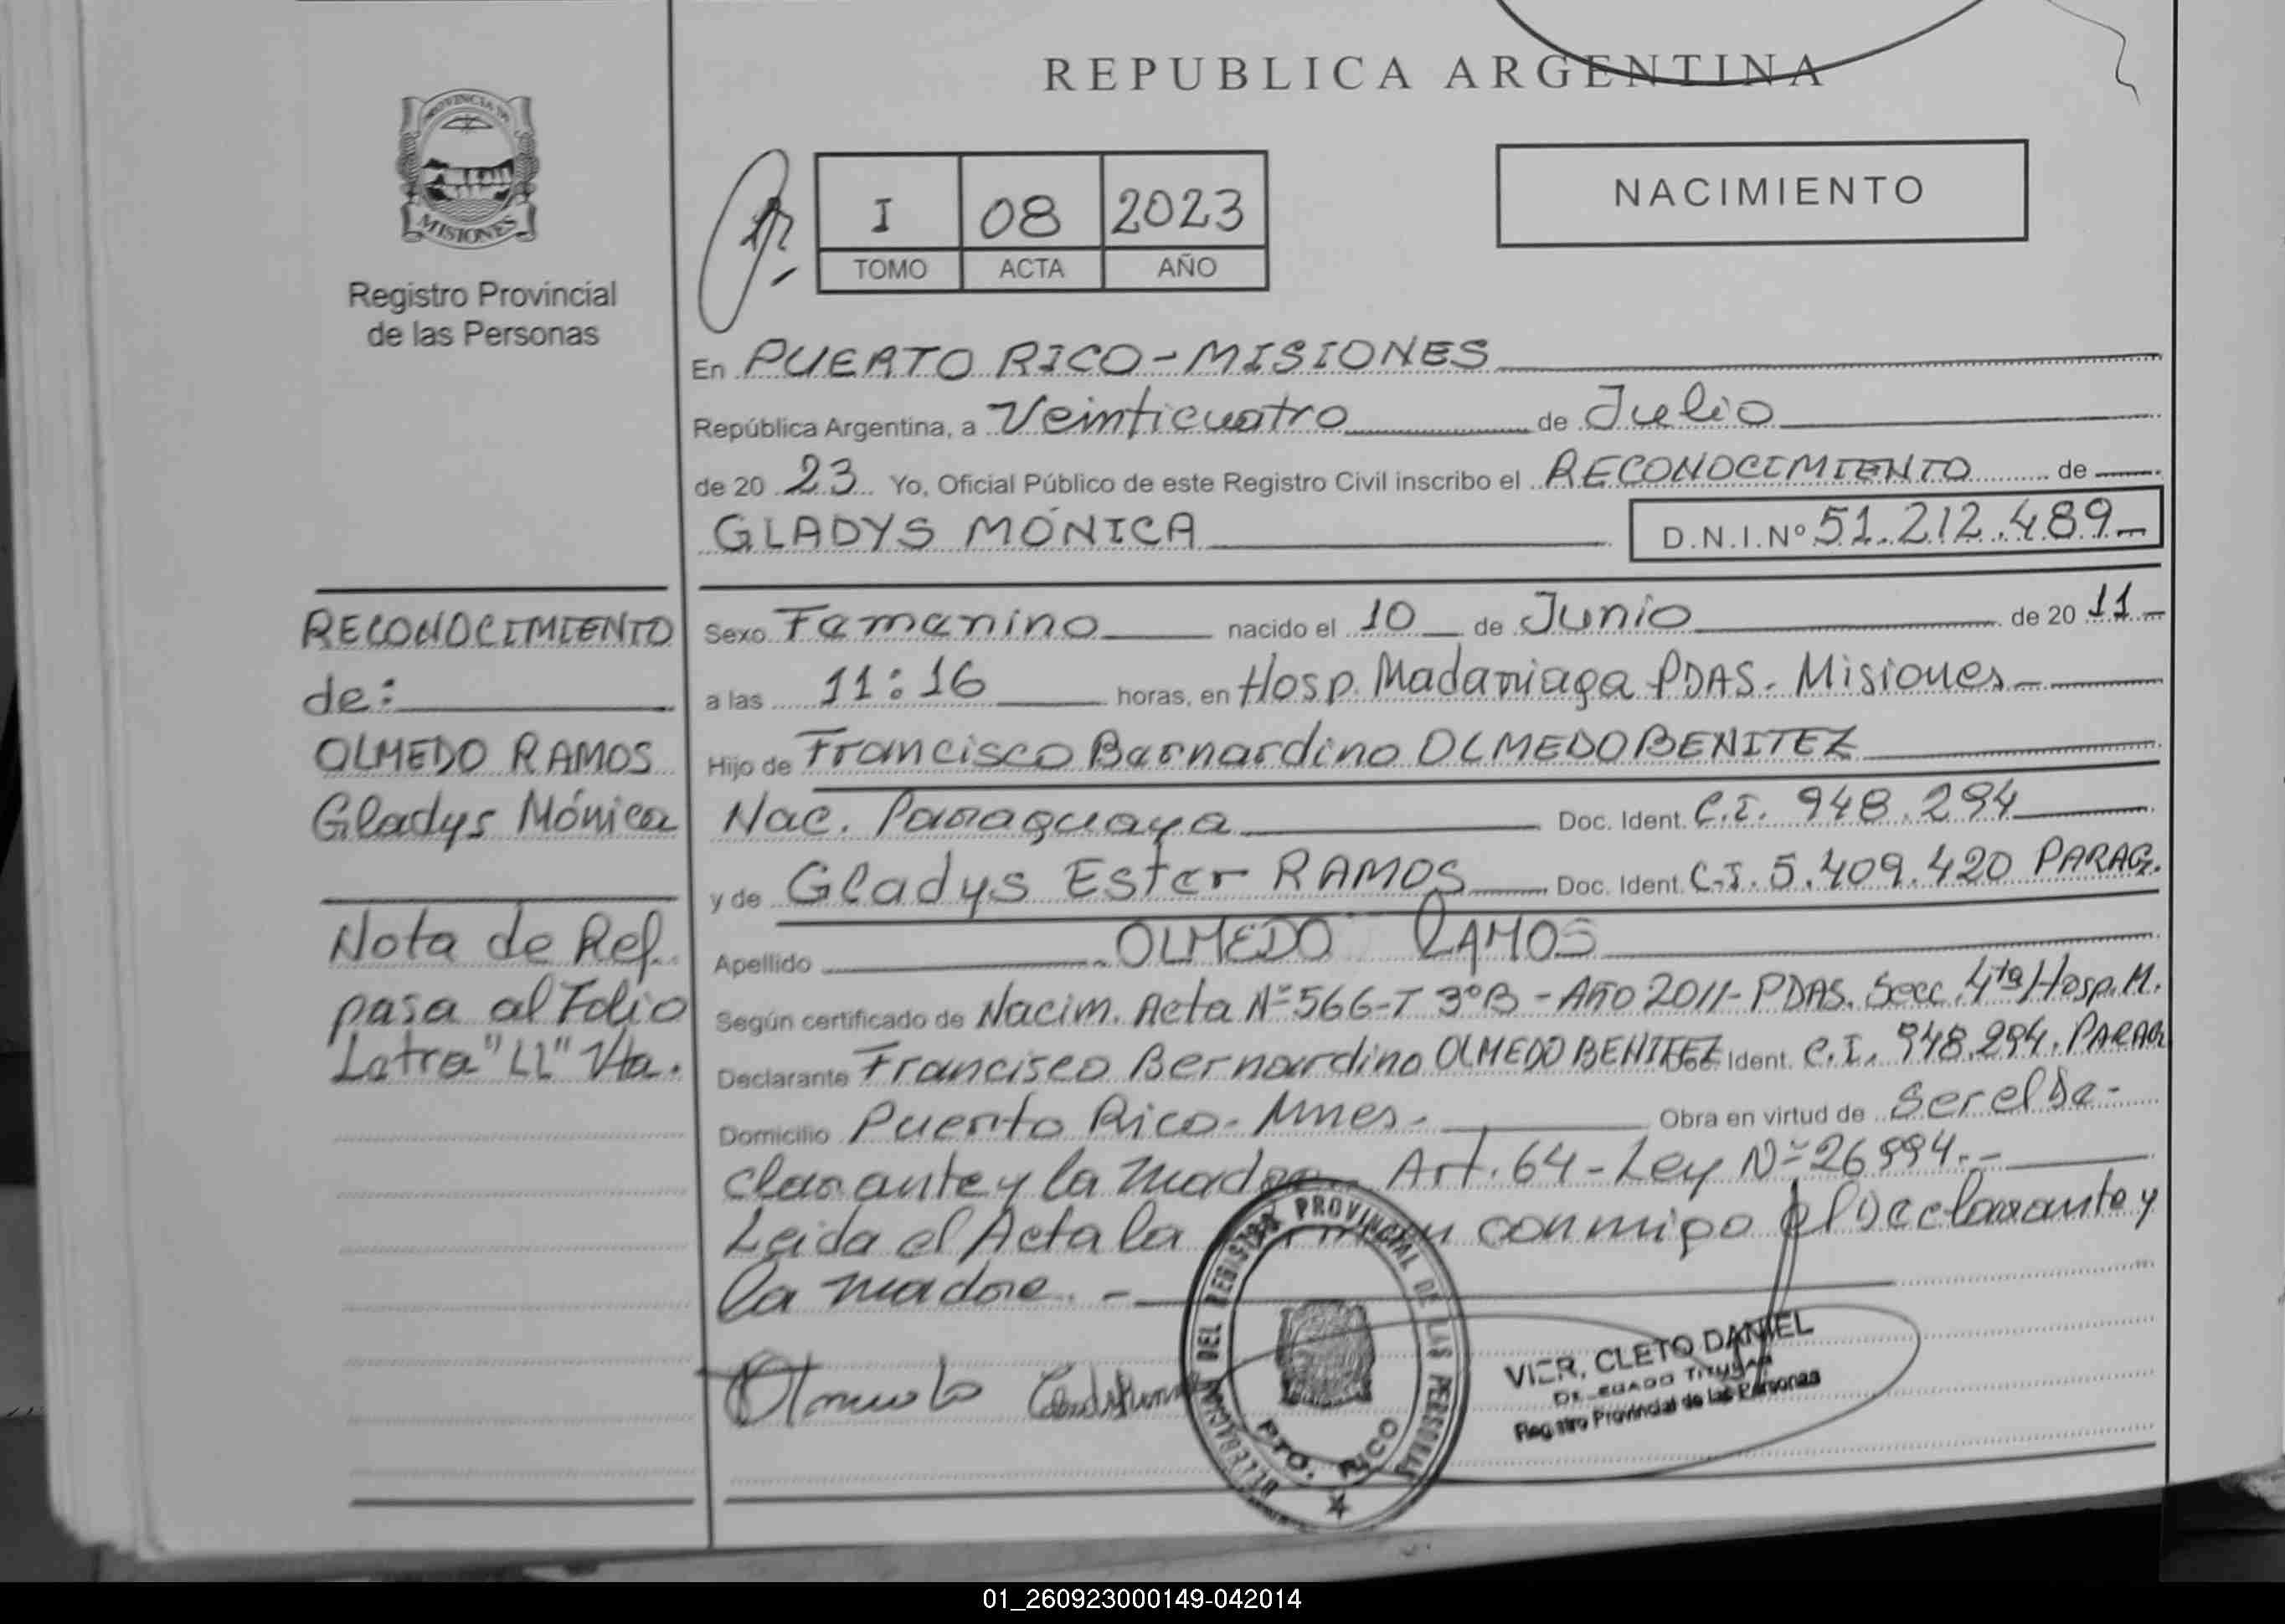 REPUBLICA ARGENTINA
PROVINCIA DE
MISIONES
Registro Provincial
de las Personas
I 08 2023
TOMO ACTA AÑO
NACIMIENTO
En PUERTO RICO-MISIONES
República Argentina, a Veinticuatro de Julio
de 20 23 Yo, Oficial Público de este Registro Civil inscribo el RECONOCIMIENTO de
GLADYS MÓNICA D.N.I.Nº 51.212.489-
RECONOCIMIENTO
de:
OLMEDO RAMOS
Gladys Mónica
Nota de Ref.
pasa al Folio
Letra "LL" Vta.
Sexo Femenino nacido el 10 de Junio de 20 11
a las 11:16 horas, en Hosp. Madariaga PDAS. Misiones
Hijo de Francisco Bernardino OLMEDO BENITEZ
Nac. Paraguaya Doc. Ident. C.I. 948.294
y de Gladys Ester RAMOS Doc. Ident. C.I. 5.409.420 PARAG.
Apellido OLMEDO RAMOS
Según certificado de Nacim. Acta Nº 566-T 3ºB - Año 2011- PDAS. Secc. 4ta Hosp. M.
Declarante Francisco Bernardino OLMEDO BENITEZ Doc. Ident. C.I. 948.294. PARAG
Domicilio Puerto Rico- Mnes.- Obra en virtud de ser el De-
clarante y la Madre. Art. 64 - Ley Nº 26994.-
Leida el Acta la conmigo el Declarante y
la Madre. -
Olmedo
DEL REGISTRO PROVINCIAL DE LAS PERSONAS
PTO. RICO
VIER, CLETO DANIEL
DELEGADO TITULAR
Registro Provincial de las Personas
01_260923000149-042014